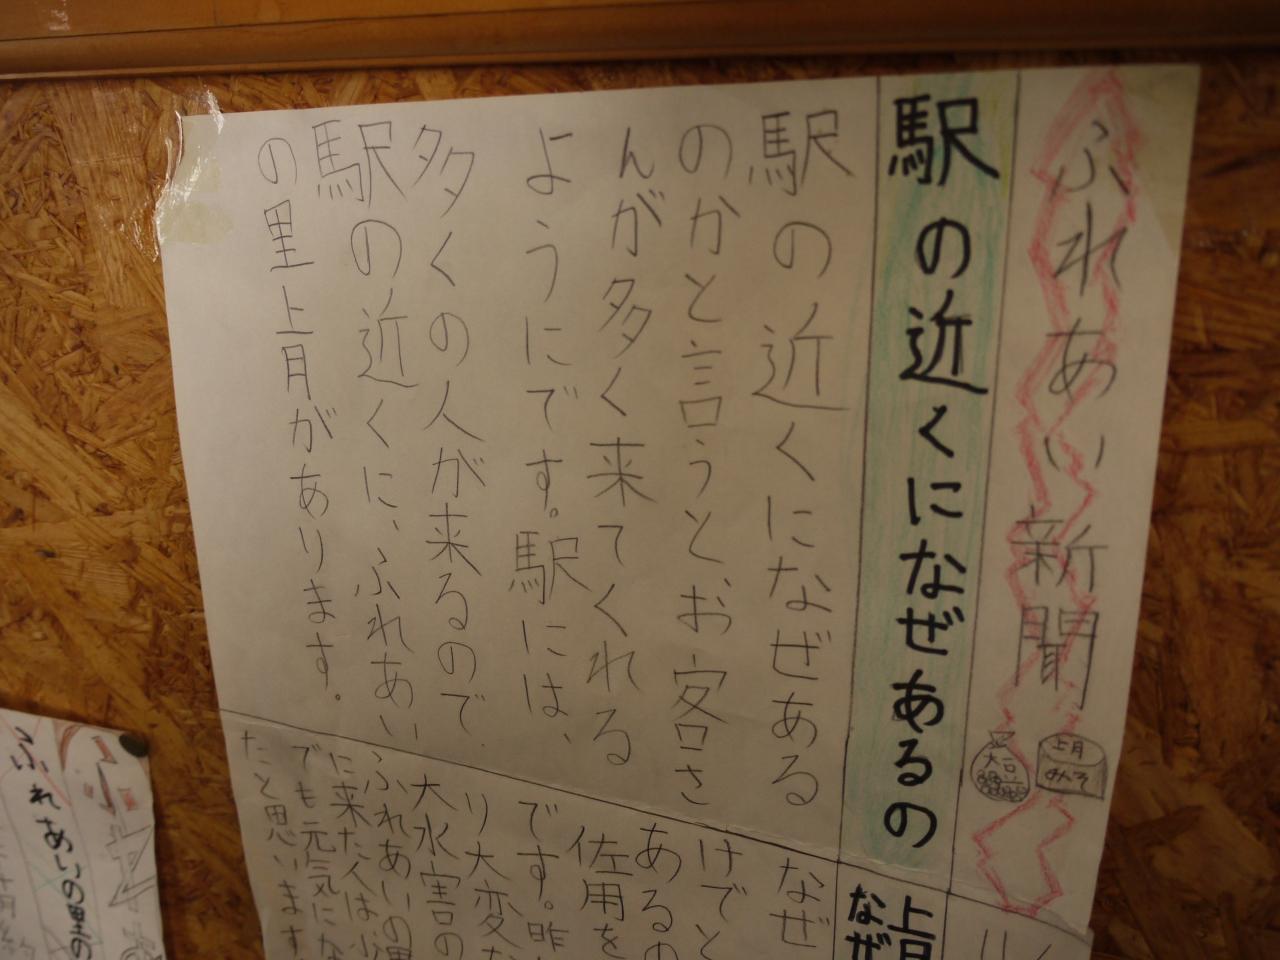 ふれあい新聞
上月
みそ
大豆
駅の近くになぜあるの
駅の近くになぜある
のかと言うとお客さ
んが多く来てくれる
ようにです。駅には、
多くの人が来るので
駅の近くに、ふれあい
の里上月があります。
上月
なぜ
なぜ
けでと
あるの
佐用を
です。昨
り大変な
大水害の
ふれあいの里
に来た人は
でも元気にな
たと思います
ふれあいの里の